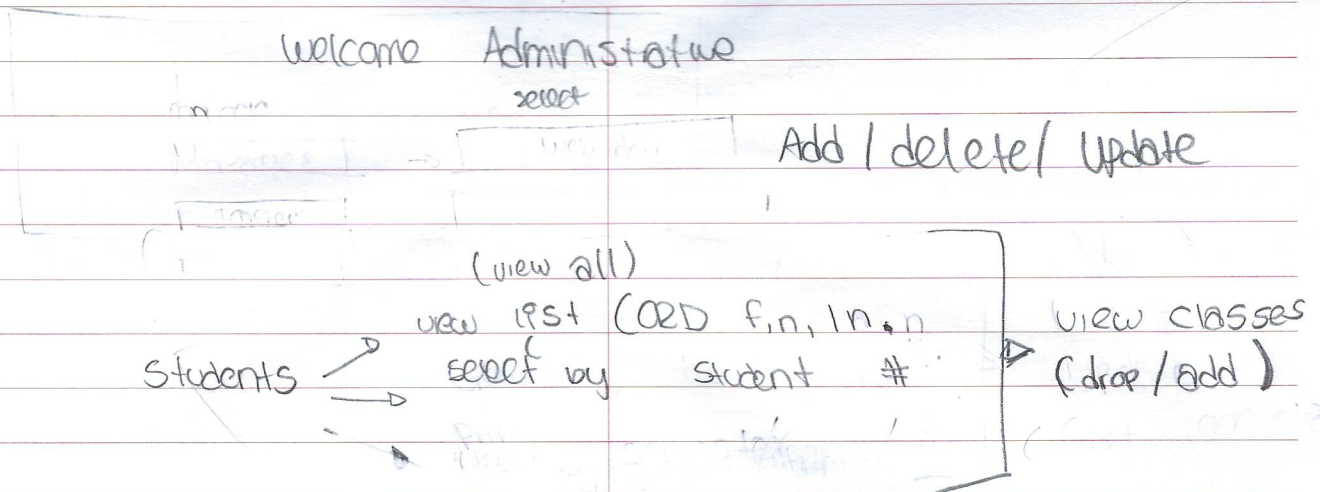 Welcome Administative
select
Add / delete / Update
(view all)
view list (ORD f.n, ln.n
Students select by student #
view classes
(drop / add)